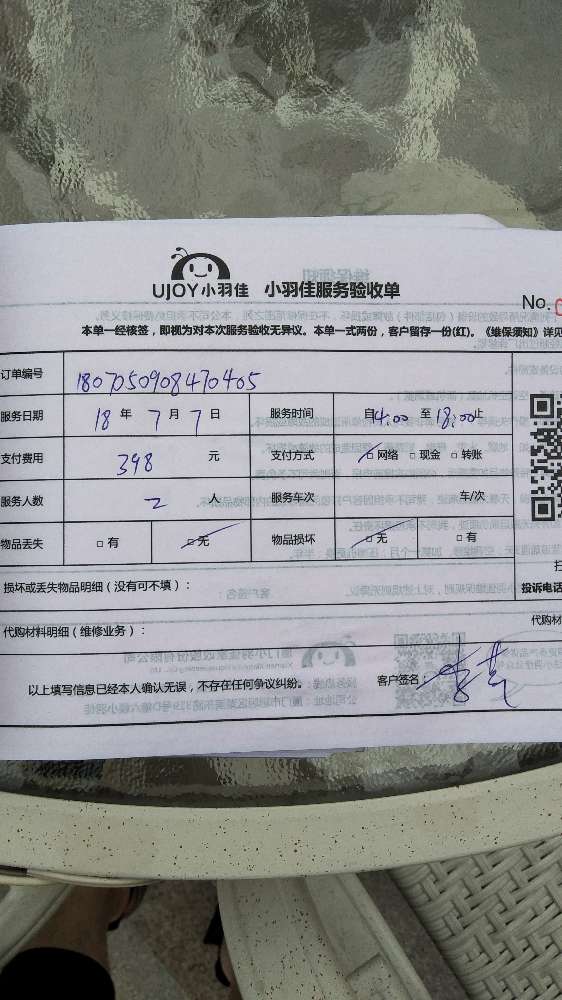 UJOY小羽佳 小羽佳服务验收单
No.
本单一经核签，即视为对本次服务验收无异议。本单一式两份，客户留存一份(红)。《维保须知》详见
订单编号 1807050908470405
服务日期 18 年 7 月 7 日 服务时间 自14:00 至 18:00止
支付费用 398 元 支付方式 网络 □ 现金 □ 转账
服务人数 2 人 服务车次 车/次
物品丢失 □ 有 □ 无 物品损坏 □ 无 □ 有
损坏或丢失物品明细（没有可不填）：
投诉电话
代购材料明细（维修业务）： 代购材
以上填写信息已经本人确认无误，不存在任何争议纠纷。 客户签名：